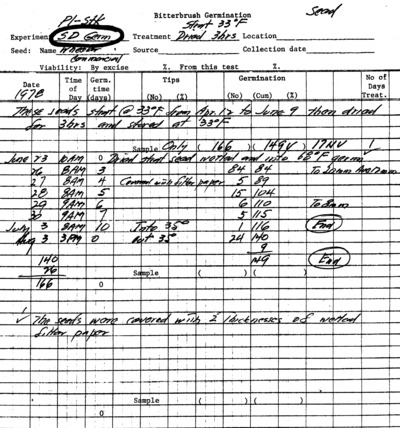 Pl-Stk
Bitterbrush Germination
Seed
Start 33°F
Experiment SD Germ Treatment Dried 3hrs Location
Seed: Name Wheeler Source Collection date
Commercial
Viability: By excise %. From this test %
Date Time of Day Germ. time (days) Tips (No) (%) Germination (No) (Cum) (%) No of Days Treat.
1978
These seeds start @ 33°F from Apr. 12 to June 9 then dried
for 3hrs and stored at 33°F
Sample Only ( 166 ) ( 149V ) 17NV 1
June 23 10AM 0 Dried start seed wetted and into 68°F germ
26 8AM 3 84 84 To 20mm
27 8AM 4 Covered with filter paper 5 89
28 8AM 5 15 104
29 9AM 6 6 110 To 8mm
30 9AM 7 5 115
July 3 8AM 10 Into 35° 1 116 End
Aug 3 3PM 0 Out 35° 24 140
9
140 149 End
26 Sample ( ) ( )
166 0
1/ The seeds were covered with 2 thicknesses of wetted
filter paper
Sample ( ) ( )
0